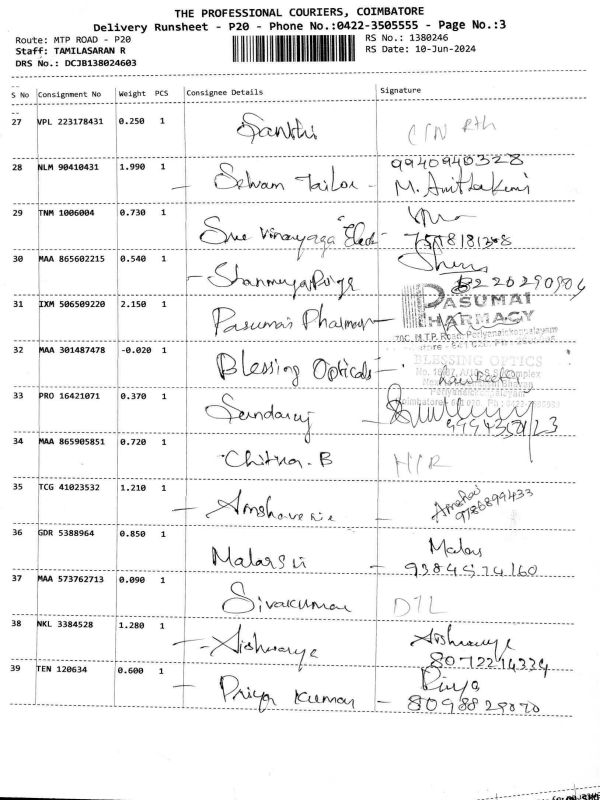 THE PROFESSIONAL COURIERS, COIMBATORE
Delivery Runsheet - P20 - Phone No.:0422-3505555 - Page No.:3
Route: MTP ROAD - P20
RS No.: 1380246
Staff: TAMILASARAN R
RS Date: 10-Jun-2024
DRS No.: DCJB138024603
S No Consignment No Weight PCS Consignee Details Signature
27 VPL 223178431 0.250 1 Santhi
28 NLM 90410431 1.990 1 Selvam Tailor 9940940328
29 TNM 1006004 0.730 1 Sree Vinayaga Elect
30 MAA 865602215 0.540 1
31 IXM 506509220 2.150 1 Pasumai Pharmacy PASUMAI
PHARMACY
32 MAA 301487478 -0.020 1 Blessing Opticals BLESSING OPTICS
33 PRO 16421071 0.370 1 Sundaraj
34 MAA 865905851 0.720 1 Chitra.B
35 TCG 41023532 1.210 1 9786899433
36 GDR 5388964 0.850 1 Malar
9384574160
37 MAA 573762713 0.090 1 Sivakumar DTL
38 NKL 3384528 1.280 1 Aishwarya Aishwarya
39 TEN 120634 0.600 1 Priya Kumar Priya